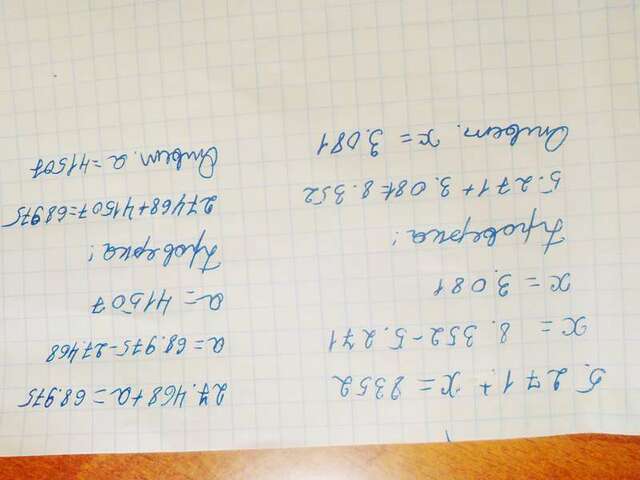 5.271+ x = 8352
x = 8.352-5.271
x = 3.081
Проверка!
5.271+3.081=8.352
Ответ. x = 3.081
27.468+a=68.975
a=68.975-27.468
a=41507
Проверка!
27468+41507=68975
Ответ. a=41507